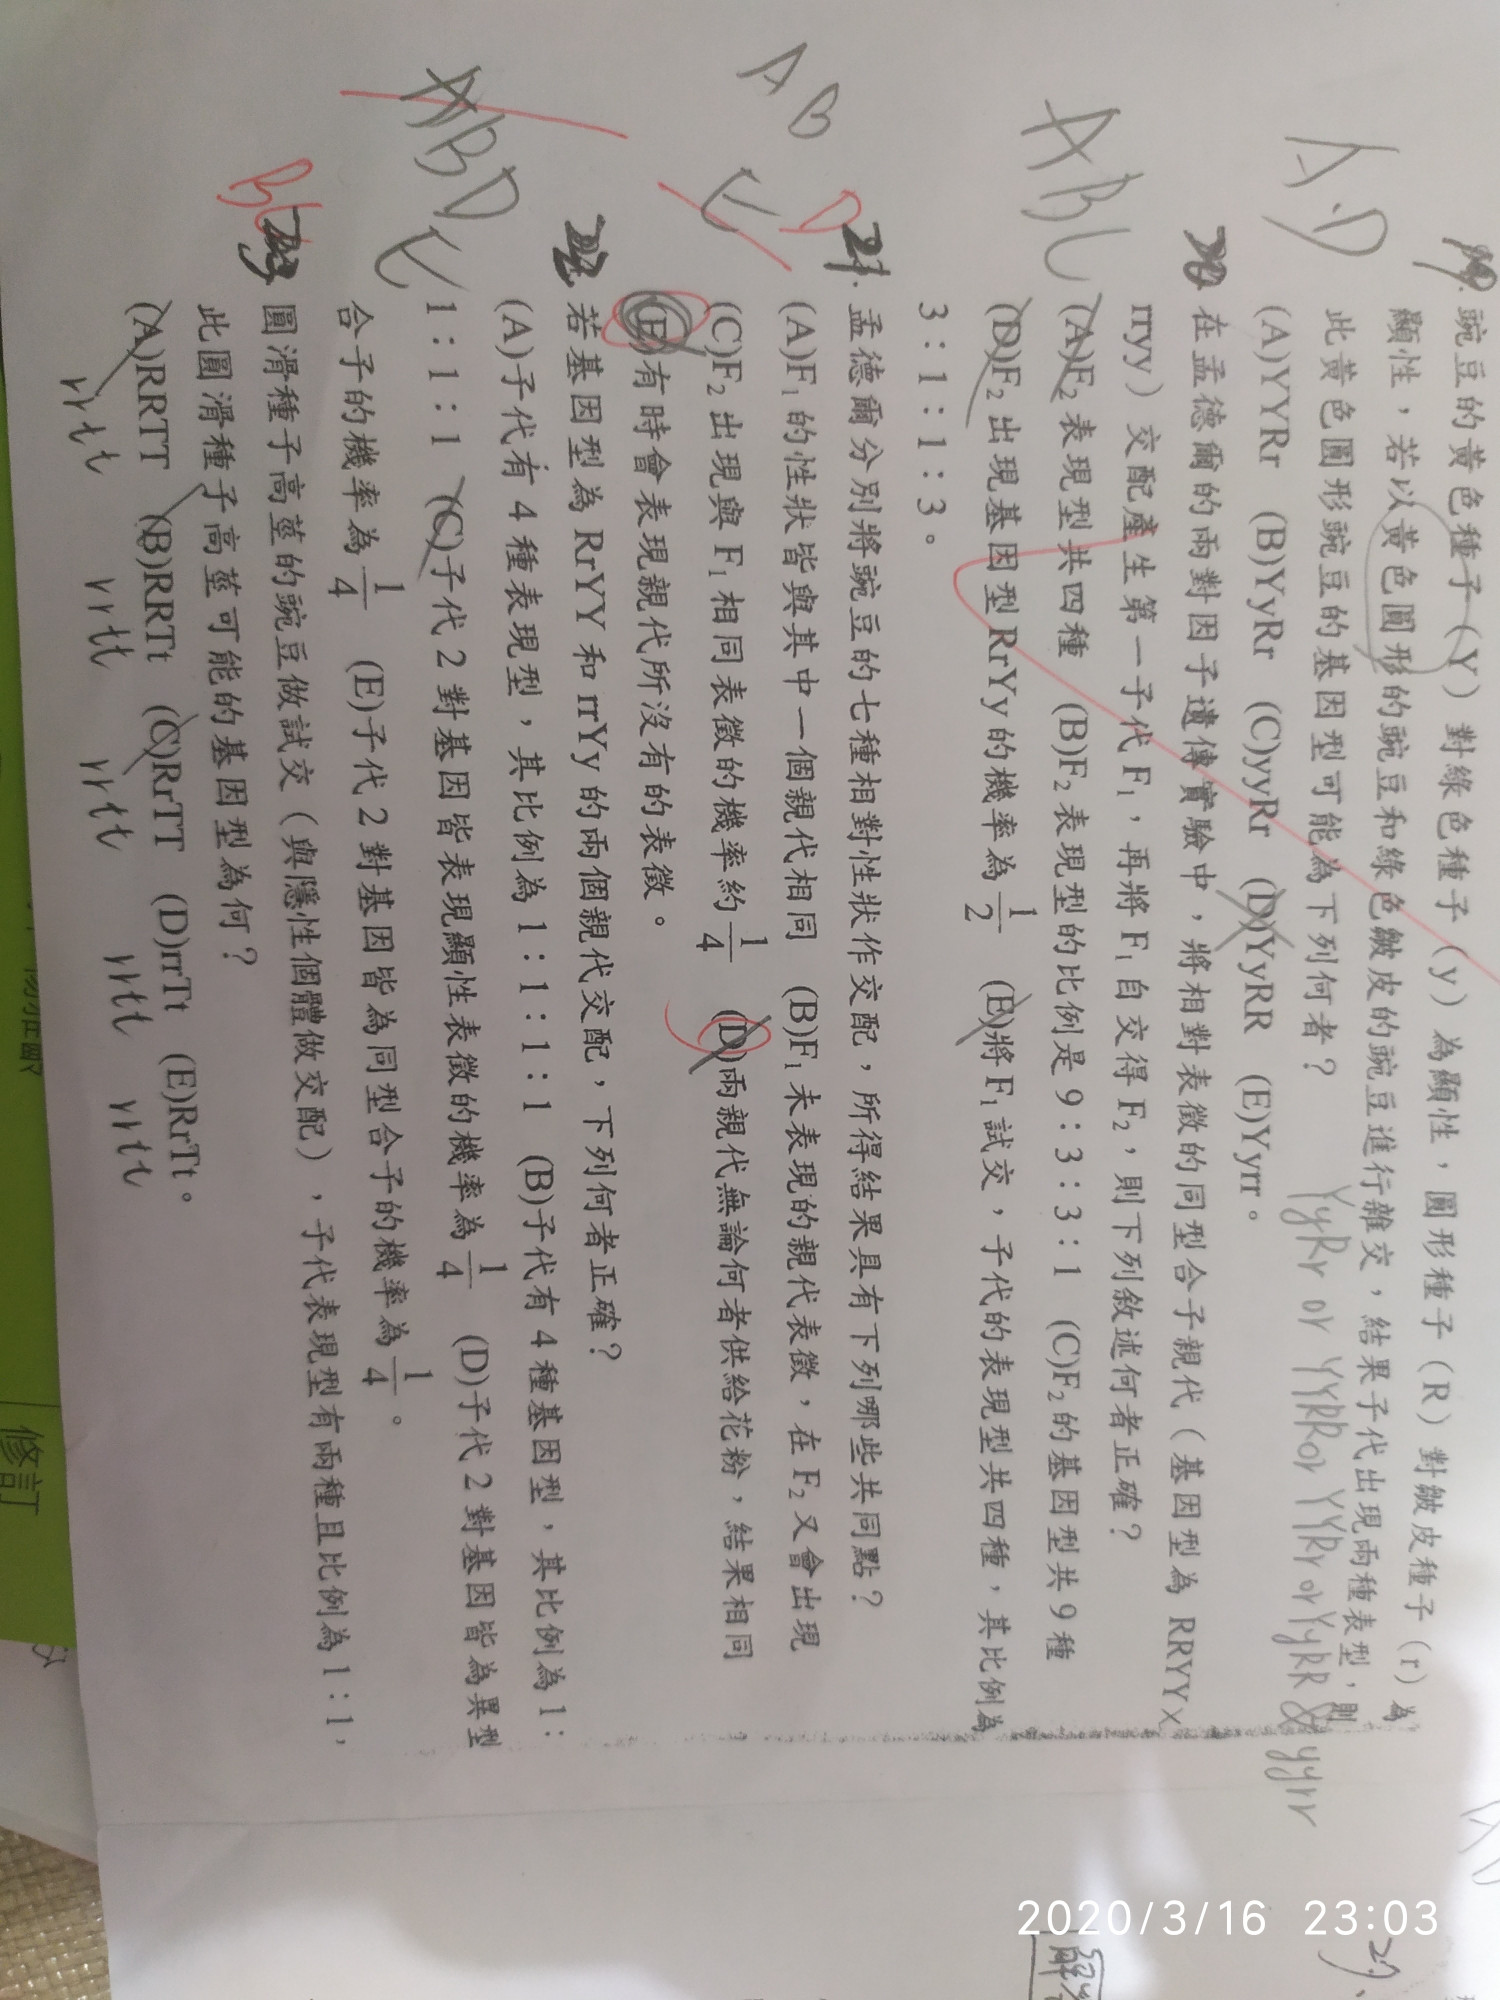 19. 豌豆的黃色種子（Y）對綠色種子（y）為顯性，圓形種子（R）對皺皮種子（r）為
顯性，若以黃色圓形的豌豆和綠色皺皮的豌豆進行雜交，結果子代出現兩種表型，則
此黃色圓形豌豆的基因型可能為下列何者？
YyRr or YYRR or YYRr or YyRR & yyrr
A.D
(A)YYRr (B)YyRr (C)yyRr (D)YyRR (E)Yyrr。
20. 在孟德爾的兩對因子遺傳實驗中，將相對表徵的同型合子親代（基因型為 RRYY×
rryy）交配產生第一子代 F₁，再將 F₁ 自交得 F₂，則下列敘述何者正確？
ABC
(A)F₂ 表現型共四種 (B)F₂ 表現型的比例是 9：3：3：1 (C)F₂ 的基因型共 9 種
(D)F₂ 出現基因型 RrYy 的機率為 1/2 (E)將 F₁ 試交，子代的表現型共四種，其比例為
3：1：1：3。
AB
D
21. 孟德爾分別將豌豆的七種相對性狀作交配，所得結果具有下列哪些共同點？
(A)F₁ 的性狀皆與其中一個親代相同 (B)F₁ 未表現的親代表徵，在 F₂ 又會出現
(C)F₂ 出現與 F₁ 相同表徵的機率約 1/4 (D)兩親代無論何者供給花粉，結果相同
(E)有時會表現親代所沒有的表徵。
ABD
22. 若基因型為 RrYY 和 rrYy 的兩個親代交配，下列何者正確？
(A)子代有 4 種表現型，其比例為 1：1：1：1 (B)子代有 4 種基因型，其比例為 1：
1：1：1 (C)子代 2 對基因皆表現顯性表徵的機率為 1/4 (D)子代 2 對基因皆為異型
合子的機率為 1/4 (E)子代 2 對基因皆為同型合子的機率為 1/4。
23. 圓滑種子高莖的豌豆做試交（與隱性個體做交配），子代表現型有兩種且比例為 1：1，
此圓滑種子高莖可能的基因型為何？
(A)RRTT (B)RRTt (C)RrTT (D)rrTt (E)RrTt。
rrtt rrtt rrtt rrtt rrtt
修訂
2020/3/16 23:03